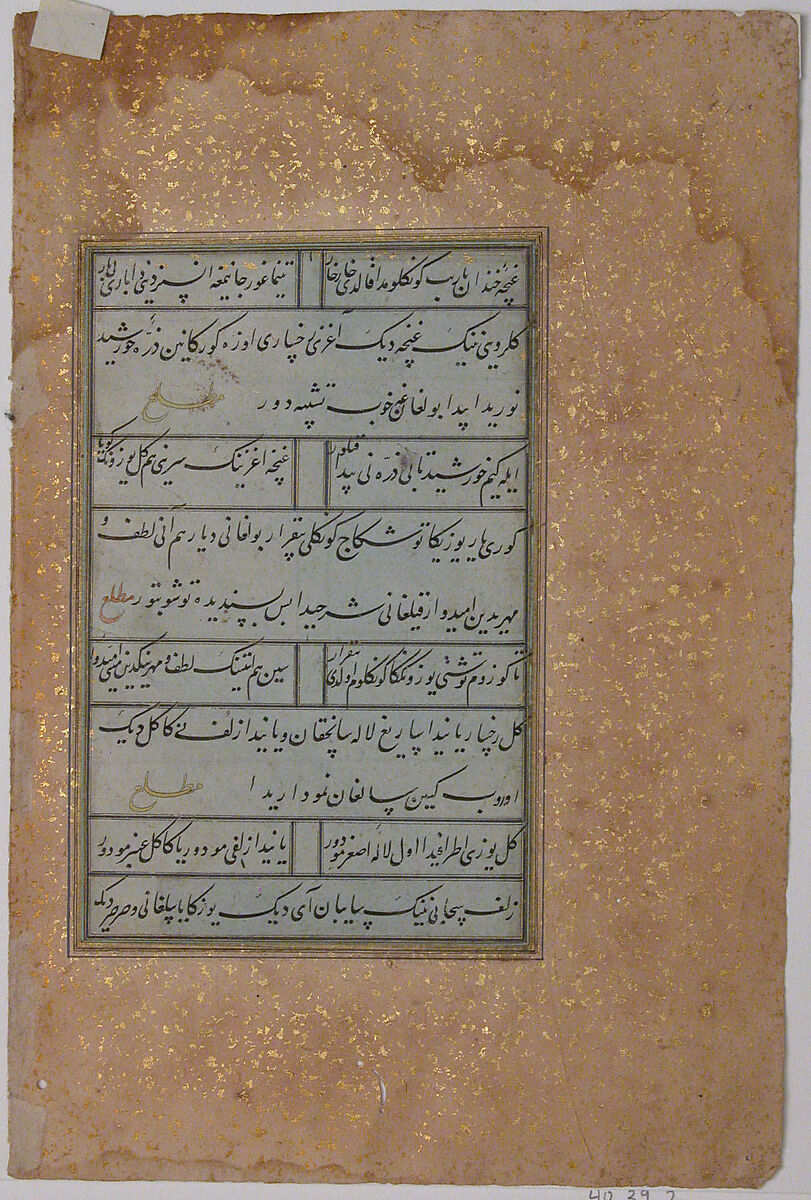 غنچهٔ خندان یارب کونکلومدا قالدی خار خار
تینماغور جانیمغه انسیز دینی
کلروینی نینک غنچه دیک آغزی رخساری اوزه کورکانین ذرّه خورشید
نوریدا پیدا بولغانغه خوب تشبیه دور
مطلع
ایله کیم خورشید تابی ذرّه نی پیدا قیلور
غنچه اغزینک سرینی هم کل یوزونک
کوری یار یوزیکا توشکاج کونکلی بیقرار بولغانی دیار هم آنی لطف و
مهریدین امیدوار قیلغانی شرحیدا بس پسندیده توشوبتور
مطلع
تا کوزوم توشتی یوزونکا کونکلوم اولدی بیقرار
سین هم انینک لطف و مهرینکدین امیدوار
کل رخسار یانیدا ساریغ لاله سانجقان و یانیدا زلف نی کاکل دیک
اوروب کین سالغان نموداریدا
مطلع
کل یوزی اطرافیدا اول لالهٔ اصفرمودور
یانیدا زلفی مودور یا کاکل عنبرمودور
زلف سحابی نینک سایبان آی دیک یوزکا یاپیلغانی و حریر دیک
40.39.2